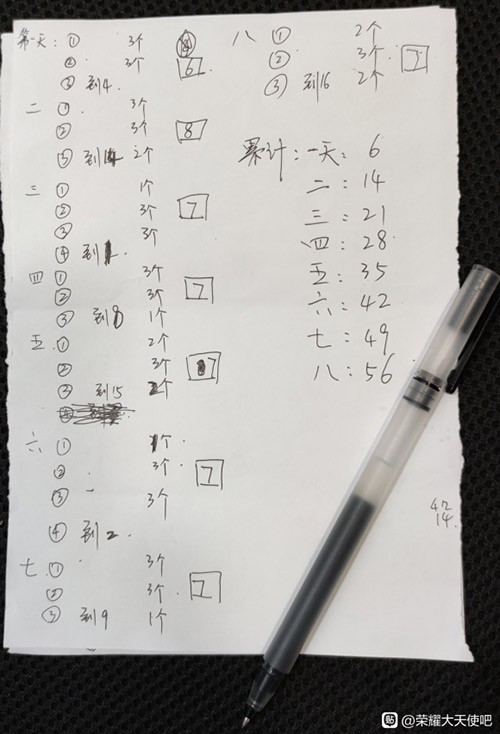 第一天: ① 3个
② 3个 6
③ 到4
二 ① 3个
② 3个 8
③ 到14 2个
三 ① 1个
② 3个 7
③ 3个
④ 到1
四 ① 3个
② 3个 7
③ 到8 1个
五 ① 2个
② 3个 7
③ 到15 2个
六 ① 1个
② 3个 7
③ 3个
④ 到2
七 ① 3个
② 3个 7
③ 到9 1个
八 ① 2个
② 3个 7
③ 到16 2个
累计: 一天: 6
二: 14
三: 21
四: 28
五: 35
六: 42
七: 49
八: 56
42
14
贴 @荣耀大天使吧